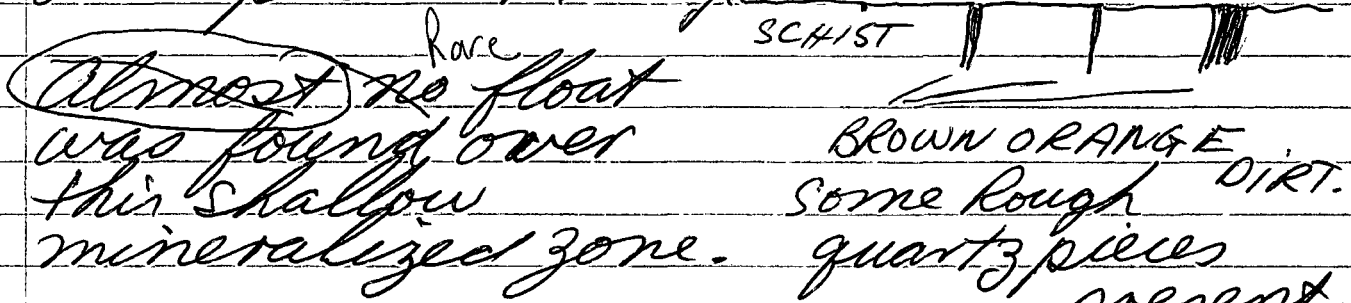 SCHIST
Rare
Almost no float
was found over
this shallow
mineralized zone.
BROWN ORANGE
DIRT.
Some Rough
quartz pieces
present.